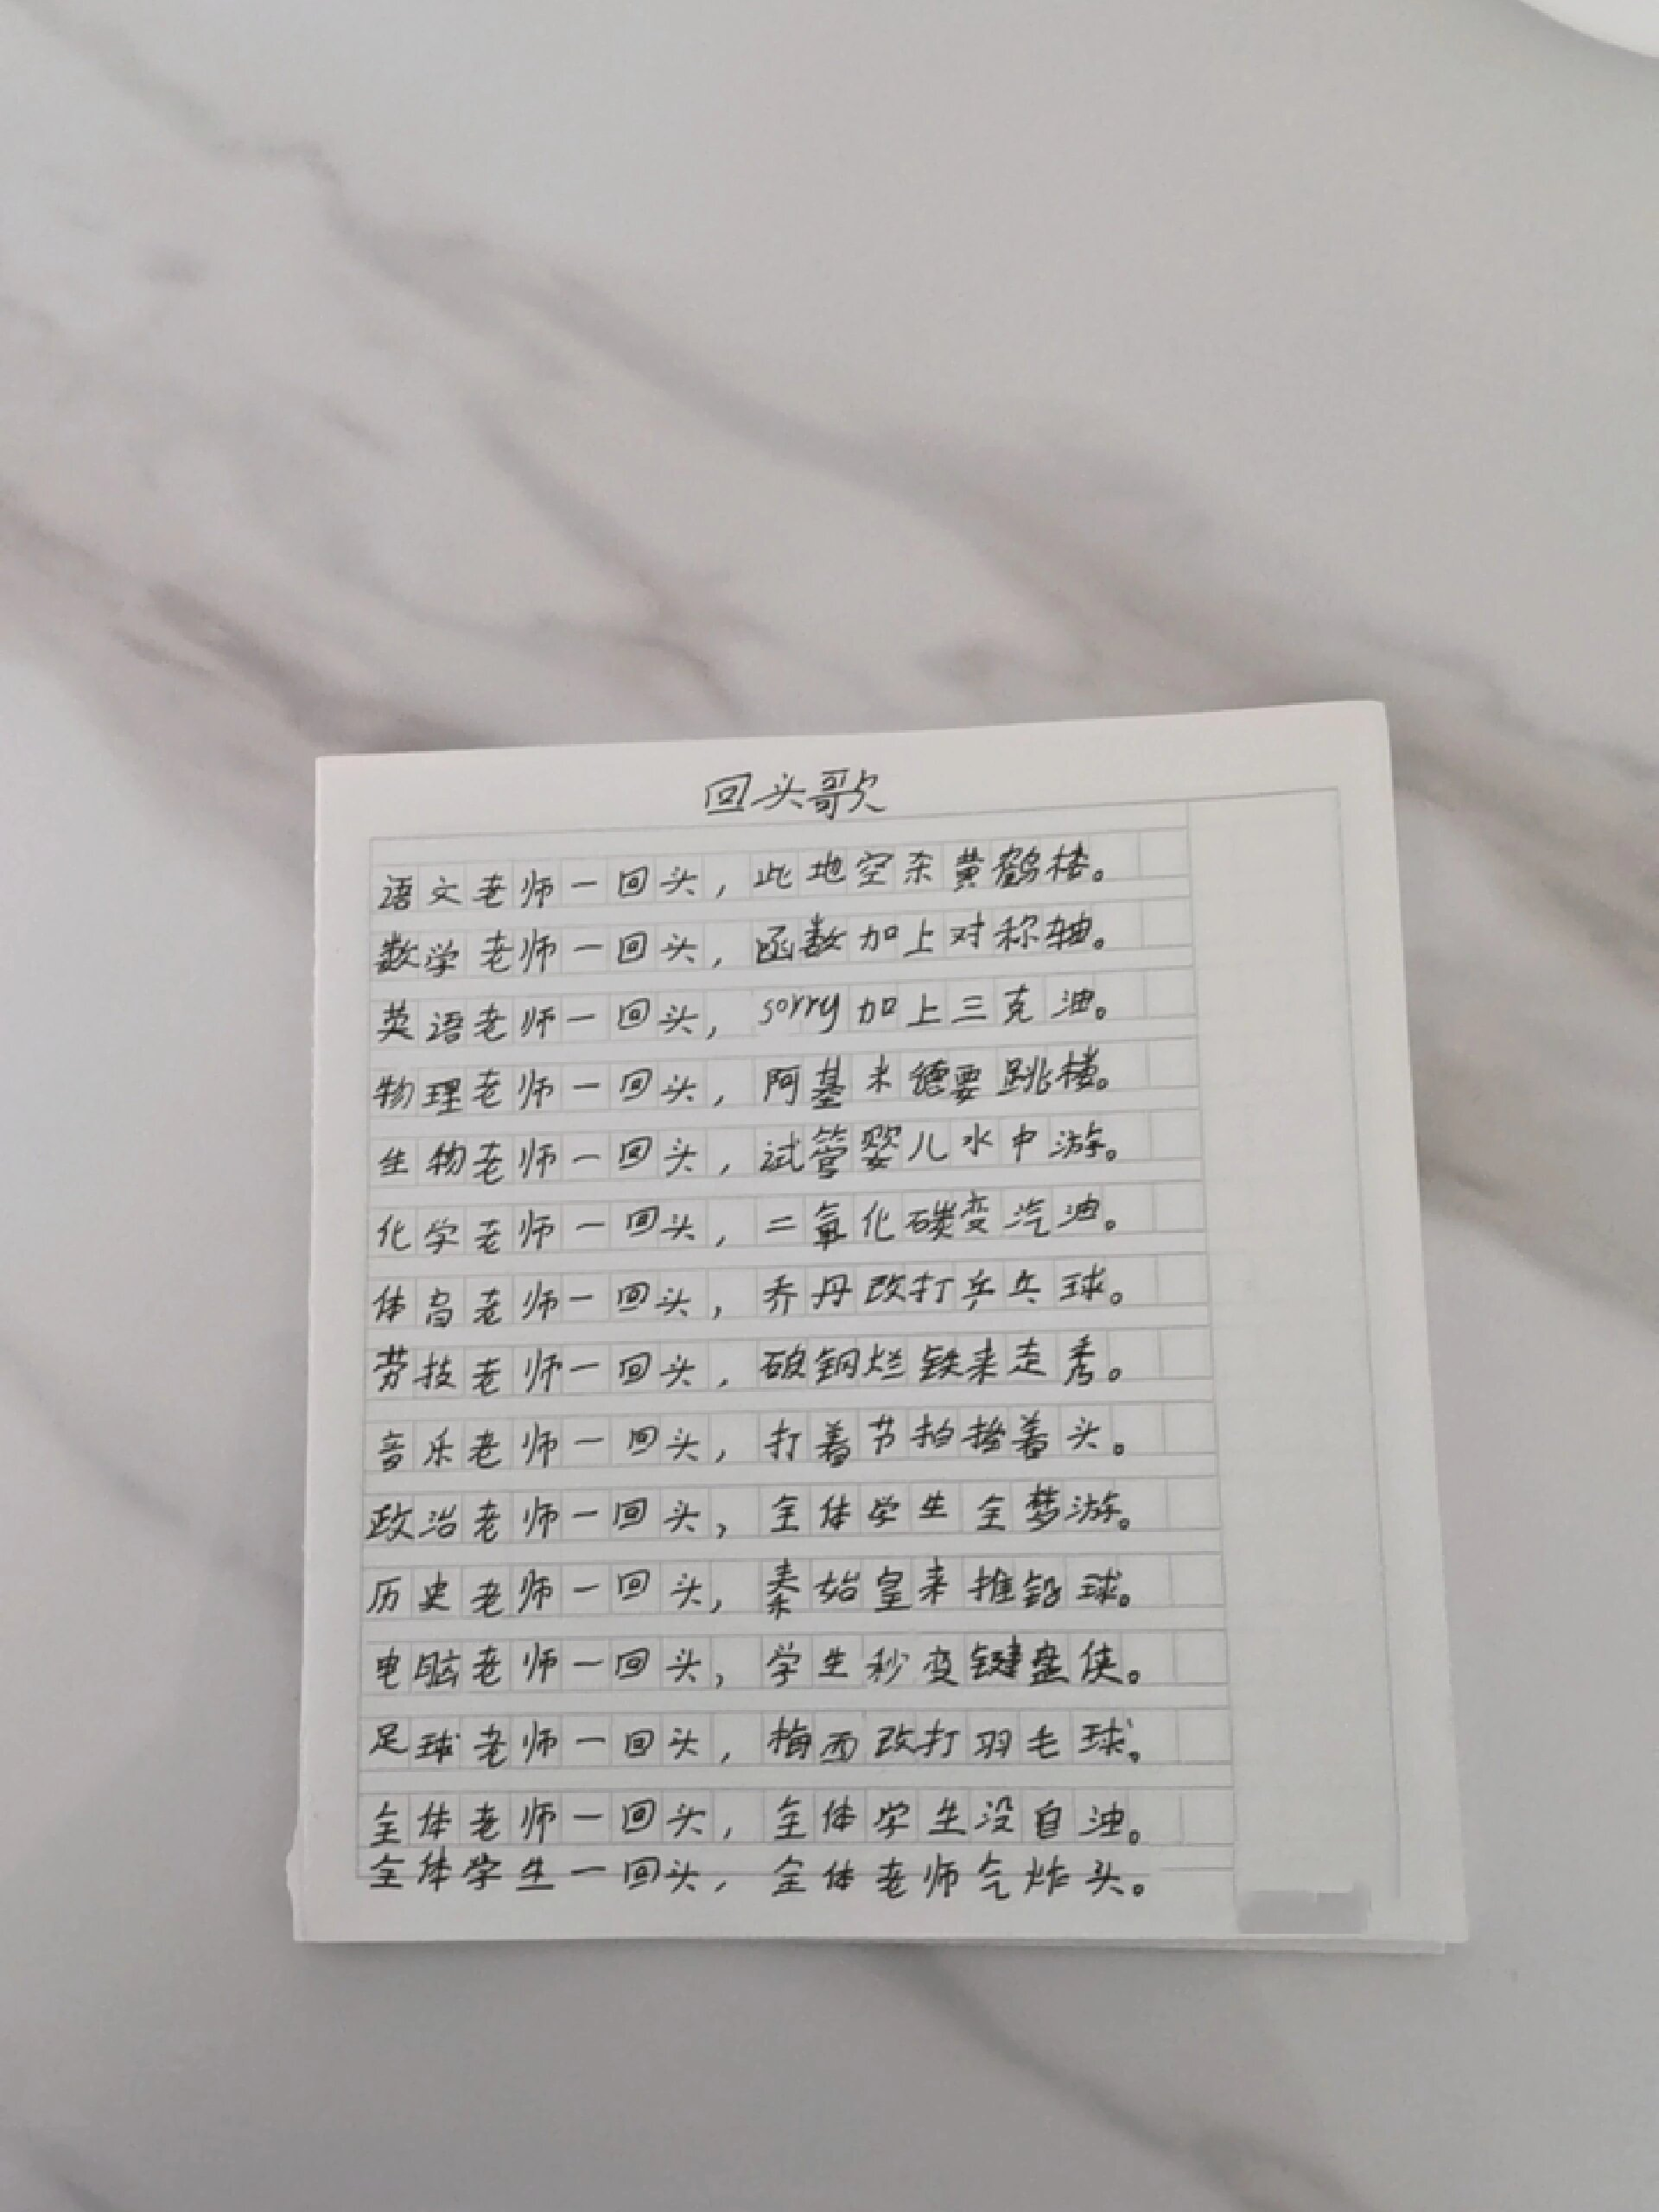 回头歌
语文老师一回头，此地空余黄鹤楼。
数学老师一回头，函数加上对称轴。
英语老师一回头，sorry加上三克油。
物理老师一回头，阿基米德要跳楼。
生物老师一回头，试管婴儿水中游。
化学老师一回头，二氧化碳变汽油。
体育老师一回头，乔丹改打乒乓球。
劳技老师一回头，破铜烂铁来走秀。
音乐老师一回头，打着节拍摇着头。
政治老师一回头，全体学生全梦游。
历史老师一回头，秦始皇来推铅球。
电脑老师一回头，学生秒变键盘侠。
足球老师一回头，梅西改打羽毛球。
全体老师一回头，全体学生没自油。
全体学生一回头，全体老师气炸头。